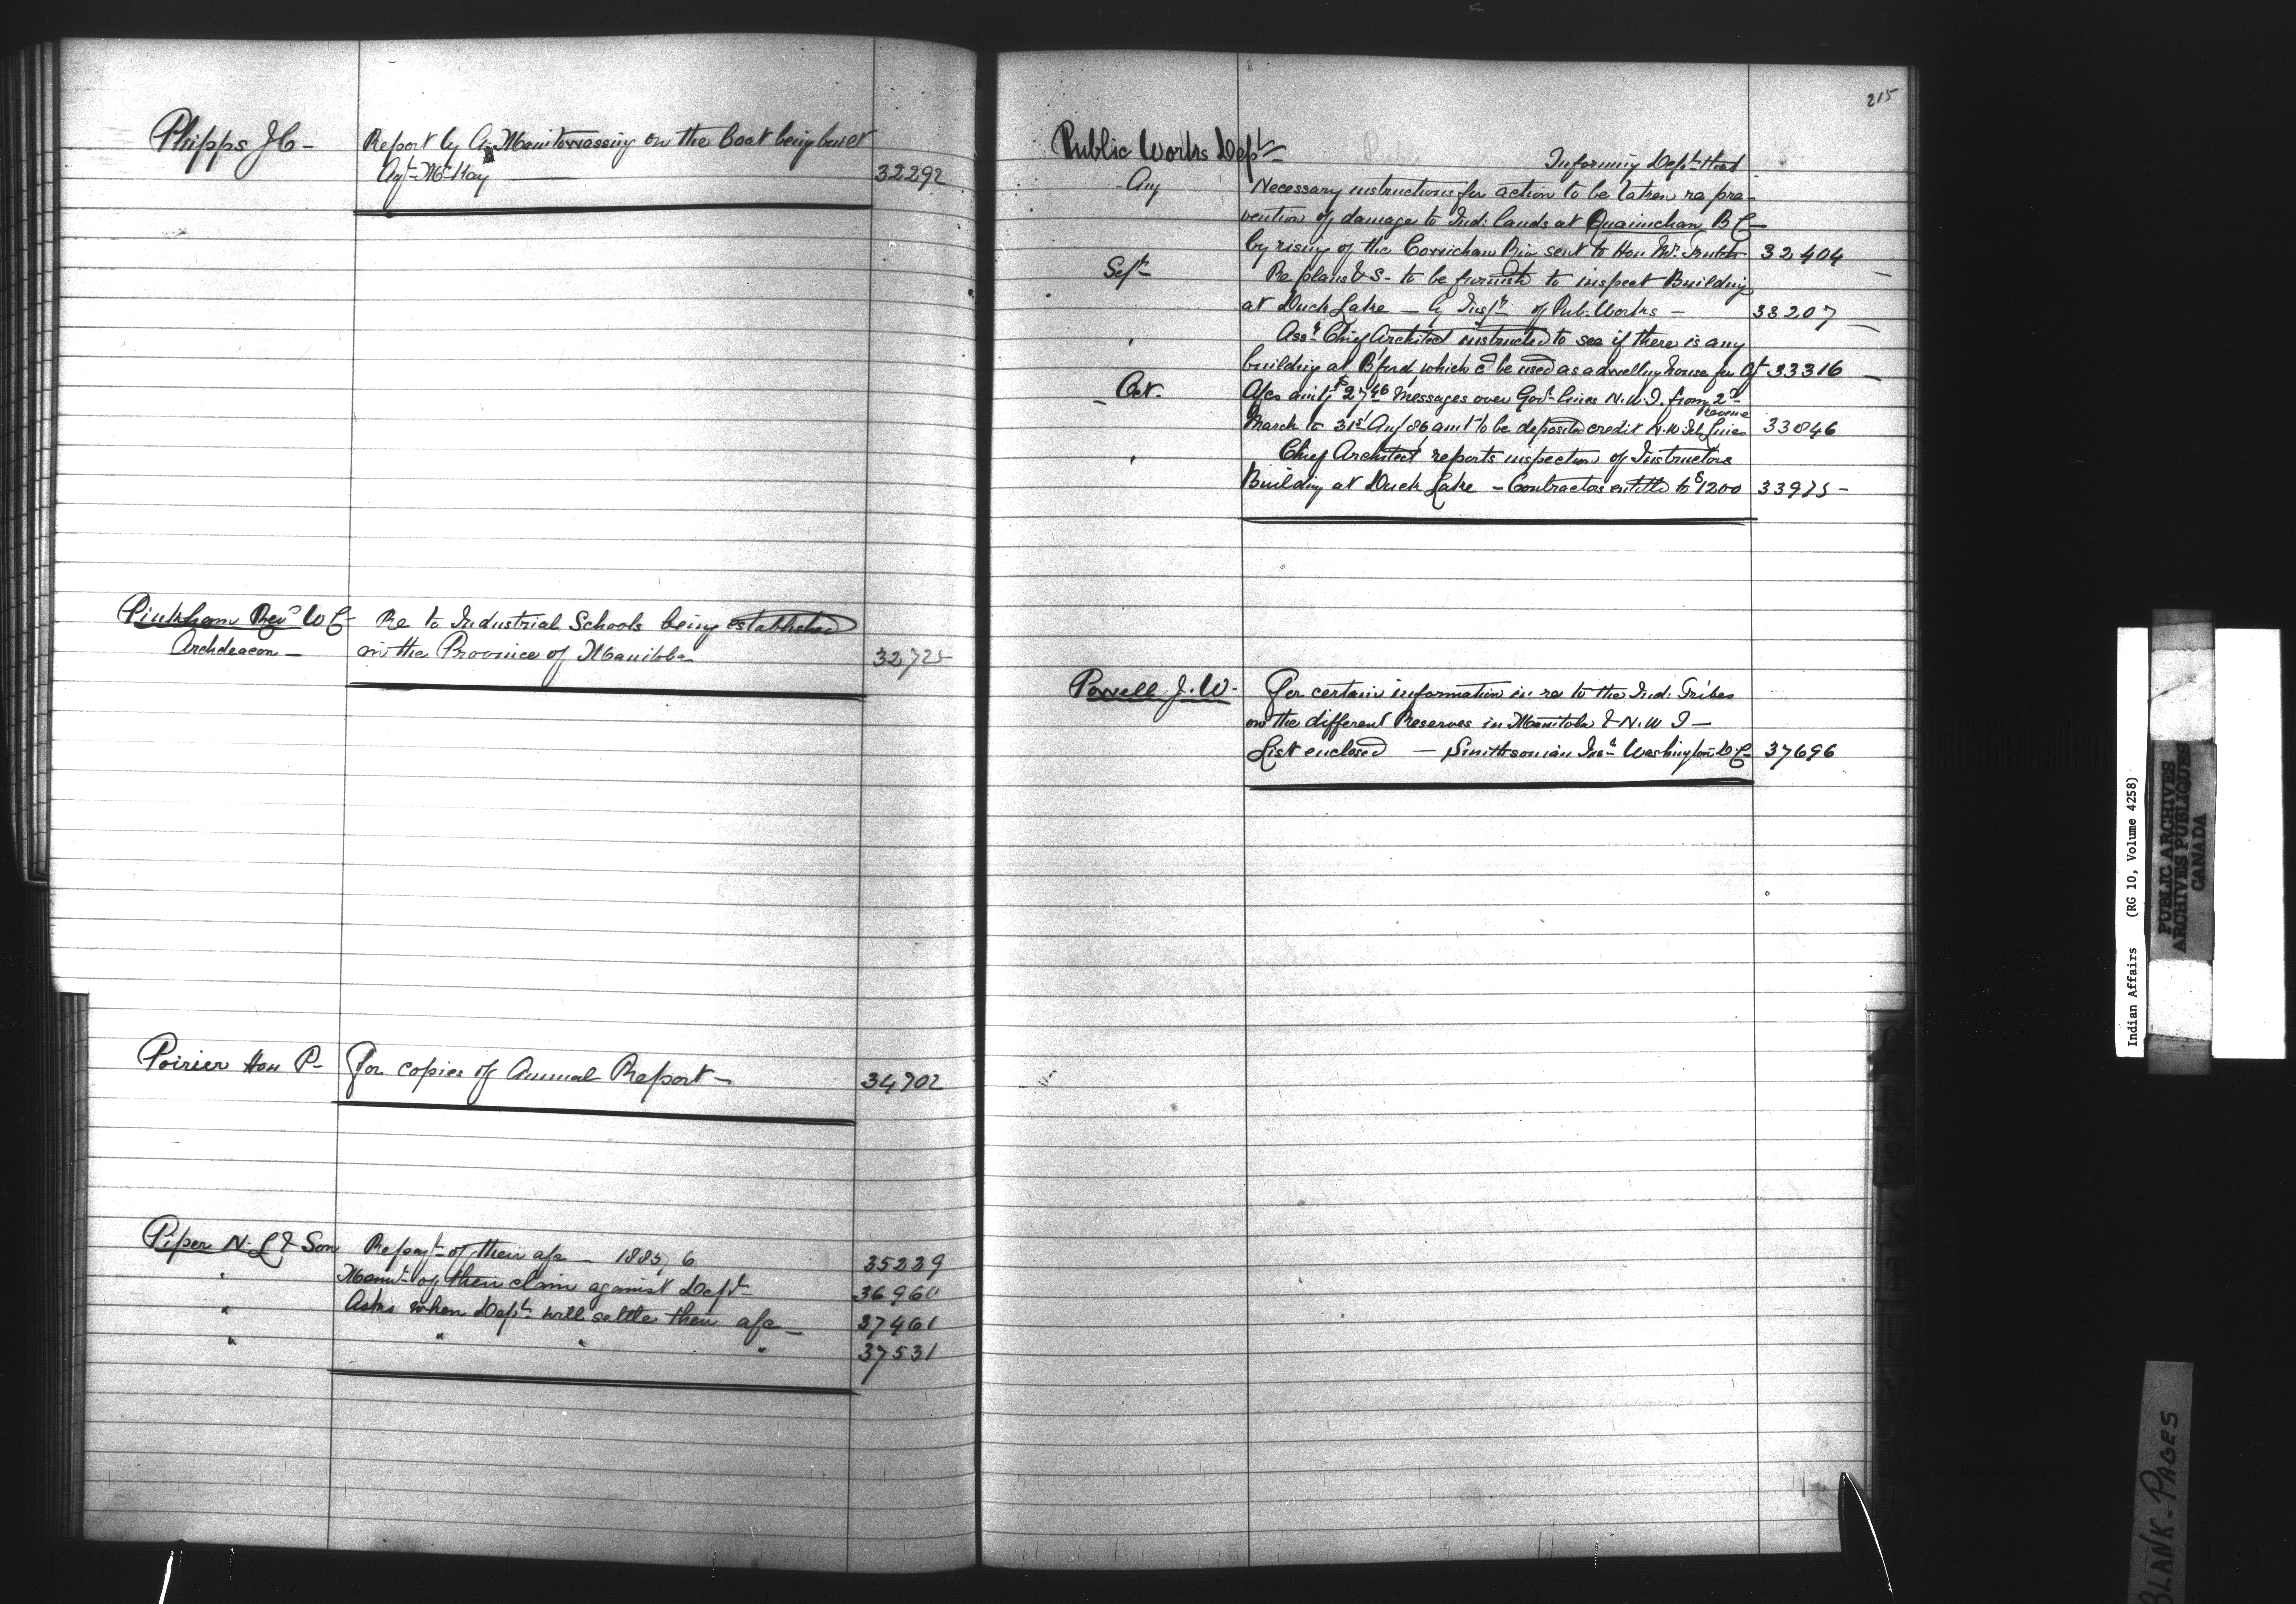 Phipps J C - Report by A. Manitowassing on the Boat being built
Agt McKay 32292
Pinkham Revd W C Re to Industrial Schools being established
Archdeacon - in the Province of Manitoba 32725
Poirier Hon P - For copies of Annual Report - 34702
Piper N. L & Son Re payt of their a/c - 1885, 6 35239
" of their claim against Dept 36960
" Asks when Dept will settle their a/c - 37461
" " " " 37531
215
Public Works Dept Informing Dept that
Aug Necessary instructions for action to be taken re pre-
vention of damage to Ind: lands at Quamichan B C
by rising of the Cowichan Riv sent to Hon Mr. Trutch 32404
Sept Re plans & S - to be furnish to inspect Building
at Duck Lake - by of Pub. Works - 33207
' Asst Chief Architect instructed to see if there is any
building at B'ford which cd be used as a dwelling house for 33316
- Oct. A/cs amtg $27.46 Messages over Govt lines N.W.T. from 2d
Revenue
March to 31st Aug 86 amt to be deposited credit N.W. Tel Lines 33846
' Chief Architect reports inspection of Instructors
Building at Duck Lake - Contractors entitled to $1200 33975 -
Powell J. W. For certain information in re to the Ind: Tribes
on the different Reserves in Manitoba & N.W T -
List enclosed - Smithsonian Insn Washington D.C. 37696
Indian Affairs (RG 10, Volume 4258)
PUBLIC ARCHIVES
ARCHIVES PUBLIQUES
CANADA
BLANK PAGES